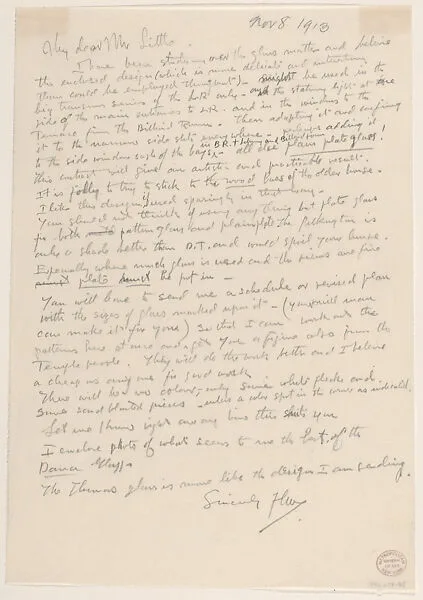 Nov 8 1913
My dear Mr Little
I have been studying over the glass matter and believe
the enclosed design (which is more delicate and interesting
than could be employed throughout) might be used in the
big transom series of the L.R. only - and the stationary light at one
side of the main entrance to L.R. and in the windows to the
Terrace from the Billiard Room. Then adapting it and confining
it to the narrow side slats everywhere - perhaps adding it
in B.R. + Library and Billiard room
to the side windows sash of the bays, - all else plain plate glass!
this contrast will give an artistic and practicable result.
It is folly to try to stick to the wood bars of the older house.
I like this design used sparingly in that way.
You should not think of using any thing but plate glass
for both pattern glass and plain plate the Pilkington is
only a shade better than D.T. and would spoil your house.
Especially where much glass is used and the rooms are fine
plate must be put in -
You will have to send me a schedule or revised plan
with the sizes of glass marked upon it - (your mill man
can make it for you) so that I can work out the
patterns here at once and get you a figure also from the
Temple people. They will do the work better and I believe
as cheap as any one for good work
There will be no colour, only some white flecks and
some sand blasted pieces - unless a color spot in the corner as indicated.
Let me know right away how this suits you
I enclose photo of what seems to me the best of the
Dana Glass
The Thomas glass is more like the design I am sending.
Sincerely FLW
METROPOLITAN
NEW YORK